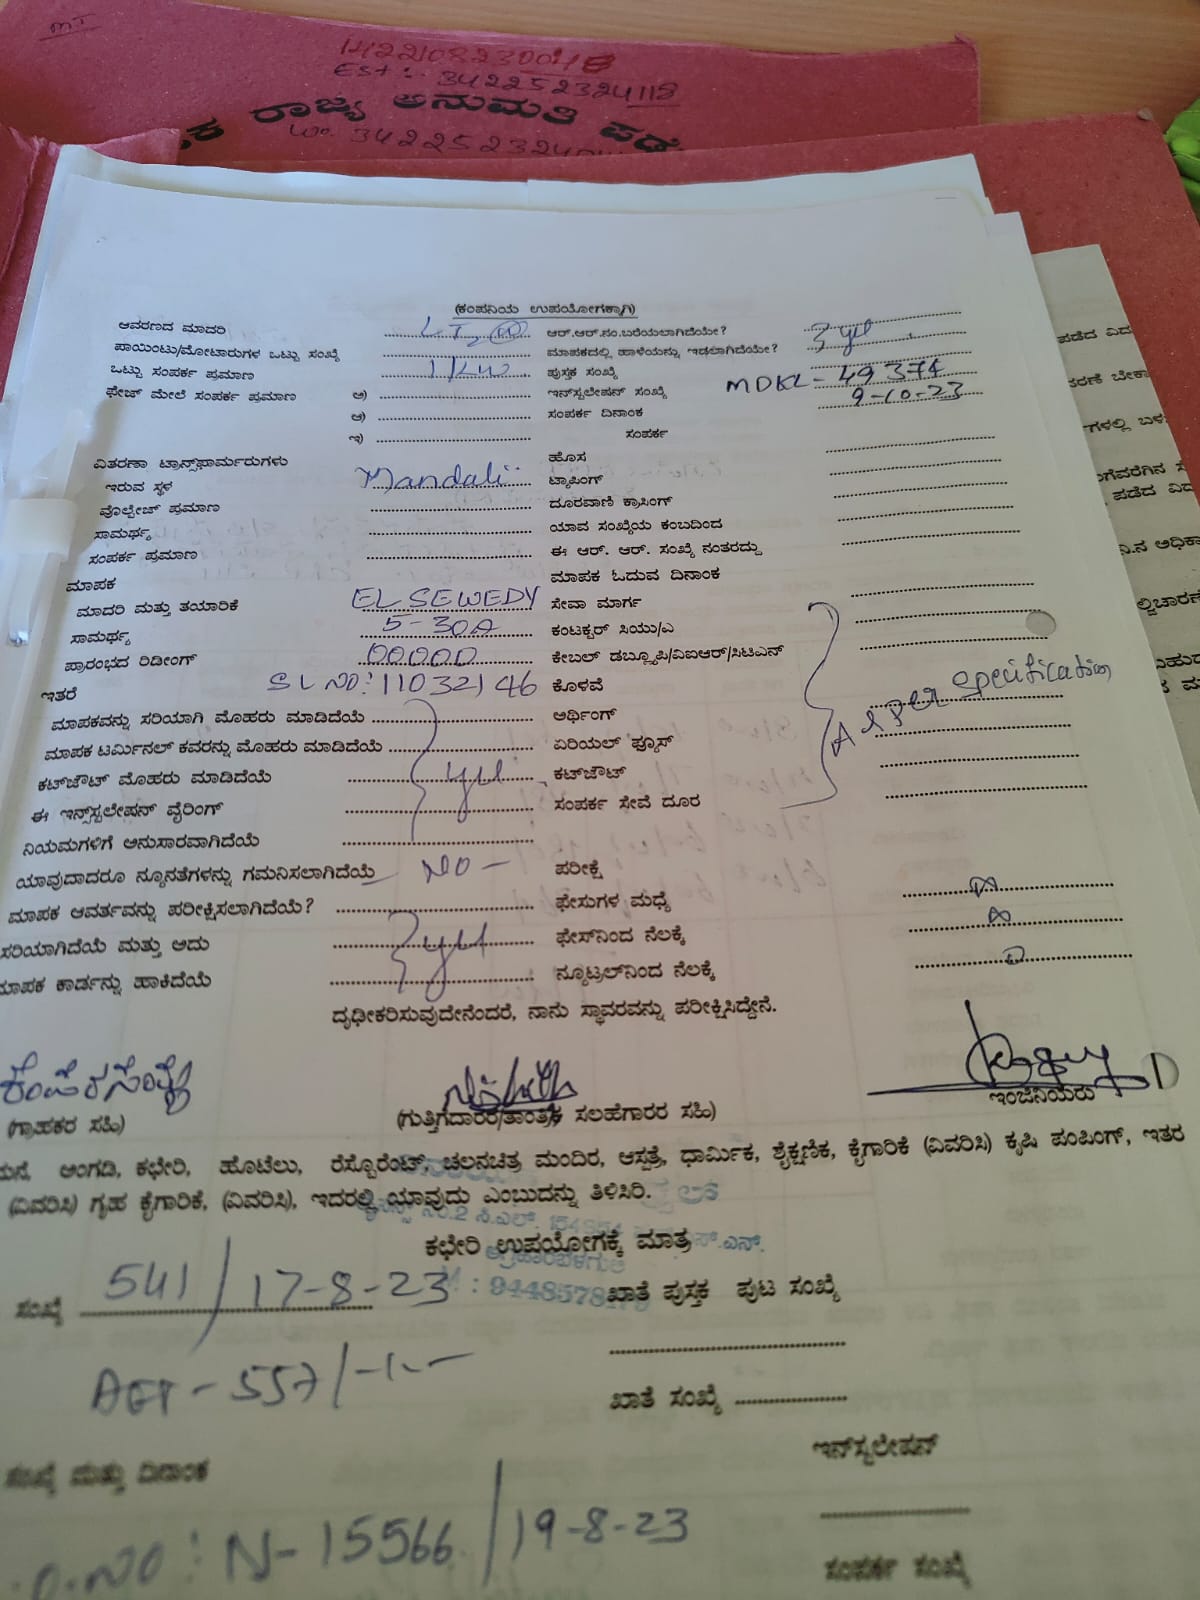 MT
1422108230048
Est :- 342252324118
ರಾಜ್ಯ ಅನುಮತಿ ಪಡೆ
Wo. 342252324
(ಕಂಪನಿಯ ಉಪಯೋಗಕ್ಕಾಗಿ)
ಆವರಣದ ಮಾದರಿ LT2 ಆರ್.ಆರ್.ನಂ.ಬರೆಯಲಾಗಿದೆಯೇ?
ಪಾಯಿಂಟು/ಮೋಟಾರುಗಳ ಒಟ್ಟು ಸಂಖ್ಯೆ ಮಾಪಕದಲ್ಲಿ ಹಾಳೆಯನ್ನು ಇಡಲಾಗಿದೆಯೇ? yes
ಒಟ್ಟು ಸಂಪರ್ಕ ಪ್ರಮಾಣ 1kw ಪುಸ್ತಕ ಸಂಖ್ಯೆ
ಫೇಜ್ ಮೇಲೆ ಸಂಪರ್ಕ ಪ್ರಮಾಣ ಅ) ಇನ್‌ಸ್ಟಲೇಷನ್ ಸಂಖ್ಯೆ MDKL-49374
ಆ) ಸಂಪರ್ಕ ದಿನಾಂಕ 9-10-23
ಇ) ಸಂಪರ್ಕ
ವಿತರಣಾ ಟ್ರಾನ್ಸ್‌ಫಾರ್ಮರುಗಳು ಹೊಸ
ಇರುವ ಸ್ಥಳ Mandali ಟ್ಯಾಪಿಂಗ್
ವೊಲ್ಟೇಜ್ ಪ್ರಮಾಣ ದೂರವಾಣಿ ಕ್ರಾಸಿಂಗ್
ಸಾಮರ್ಥ್ಯ ಯಾವ ಸಂಖ್ಯೆಯ ಕಂಬದಿಂದ
ಸಂಪರ್ಕ ಪ್ರಮಾಣ ಈ ಆರ್. ಆರ್. ಸಂಖ್ಯೆ ನಂತರದ್ದು
ಮಾಪಕ ಮಾಪಕ ಓದುವ ದಿನಾಂಕ
ಮಾದರಿ ಮತ್ತು ತಯಾರಿಕೆ EL SEWEDY ಸೇವಾ ಮಾರ್ಗ
ಸಾಮರ್ಥ್ಯ 5-30A ಕಂಟಕ್ಟರ್ ಸಿಯು/ಎ
ಪ್ರಾರಂಭದ ರಿಡೀಂಗ್ 00000 ಕೇಬಲ್ ಡಬ್ಲ್ಯೂಪಿ/ವಿಐಆರ್/ಸಿಟಿಎನ್
ಇತರೆ SL NO: 11032146 ಕೊಳವೆ As Per Specification
ಮಾಪಕವನ್ನು ಸರಿಯಾಗಿ ಮೊಹರು ಮಾಡಿದೆಯೆ ಅರ್ಥಿಂಗ್
ಮಾಪಕ ಟರ್ಮಿನಲ್ ಕವರನ್ನು ಮೊಹರು ಮಾಡಿದೆಯೆ ಏರಿಯಲ್ ಫ್ಯೂಸ್
ಕಟ್‌ಔಟ್ ಮೊಹರು ಮಾಡಿದೆಯೆ yes ಕಟ್‌ಔಟ್
ಈ ಇನ್‌ಸ್ಟಲೇಷನ್ ವೈರಿಂಗ್ ಸಂಪರ್ಕ ಸೇವೆ ದೂರ
ನಿಯಮಗಳಿಗೆ ಅನುಸಾರವಾಗಿದೆಯೆ
ಯಾವುದಾದರೂ ನ್ಯೂನತೆಗಳನ್ನು ಗಮನಿಸಲಾಗಿದೆಯೆ NO - ಪರೀಕ್ಷೆ
ಮಾಪಕ ಆವರ್ತವನ್ನು ಪರೀಕ್ಷಿಸಲಾಗಿದೆಯೆ? ಫೇಸುಗಳ ಮಧ್ಯೆ
ಸರಿಯಾಗಿದೆಯೆ ಮತ್ತು ಅದು yes ಫೇಸ್‌ನಿಂದ ನೆಲಕ್ಕೆ
ಮಾಪಕ ಕಾರ್ಡನ್ನು ಹಾಕಿದೆಯೆ ನ್ಯೂಟ್ರಲ್‌ನಿಂದ ನೆಲಕ್ಕೆ
ದೃಢೀಕರಿಸುವುದೇನೆಂದರೆ, ನಾನು ಸ್ಥಾವರವನ್ನು ಪರೀಕ್ಷಿಸಿದ್ದೇನೆ.
(ಗ್ರಾಹಕರ ಸಹಿ) (ಗುತ್ತಿಗೆದಾರರ/ತಾಂತ್ರಿಕ ಸಲಹೆಗಾರರ ಸಹಿ) ಇಂಜಿನಿಯರು
ಮನೆ, ಅಂಗಡಿ, ಕಛೇರಿ, ಹೊಟೆಲು, ರೆಸ್ಟೊರೆಂಟ್, ಚಲನಚಿತ್ರ ಮಂದಿರ, ಆಸ್ಪತ್ರೆ, ಧಾರ್ಮಿಕ, ಶೈಕ್ಷಣಿಕ, ಕೈಗಾರಿಕೆ (ವಿವರಿಸಿ) ಕೃಷಿ ಪಂಪಿಂಗ್, ಇತರ
(ವಿವರಿಸಿ) ಗೃಹ ಕೈಗಾರಿಕೆ, (ವಿವರಿಸಿ), ಇದರಲ್ಲಿ ಯಾವುದು ಎಂಬುದನ್ನು ತಿಳಿಸಿರಿ.
ಕಛೇರಿ ಉಪಯೋಗಕ್ಕೆ ಮಾತ್ರ
ಸಂಖ್ಯೆ 541/17-8-23 ಖಾತೆ ಪುಸ್ತಕ ಪುಟ ಸಂಖ್ಯೆ
AET - 557/-1-
ಖಾತೆ ಸಂಖ್ಯೆ
ಇನ್‌ಸ್ಟಲೇಷನ್
ಸಂಖ್ಯೆ ಮತ್ತು ದಿನಾಂಕ
NO: N-15566/19-8-23
ಸಂಪರ್ಕ ಸಂಖ್ಯೆ